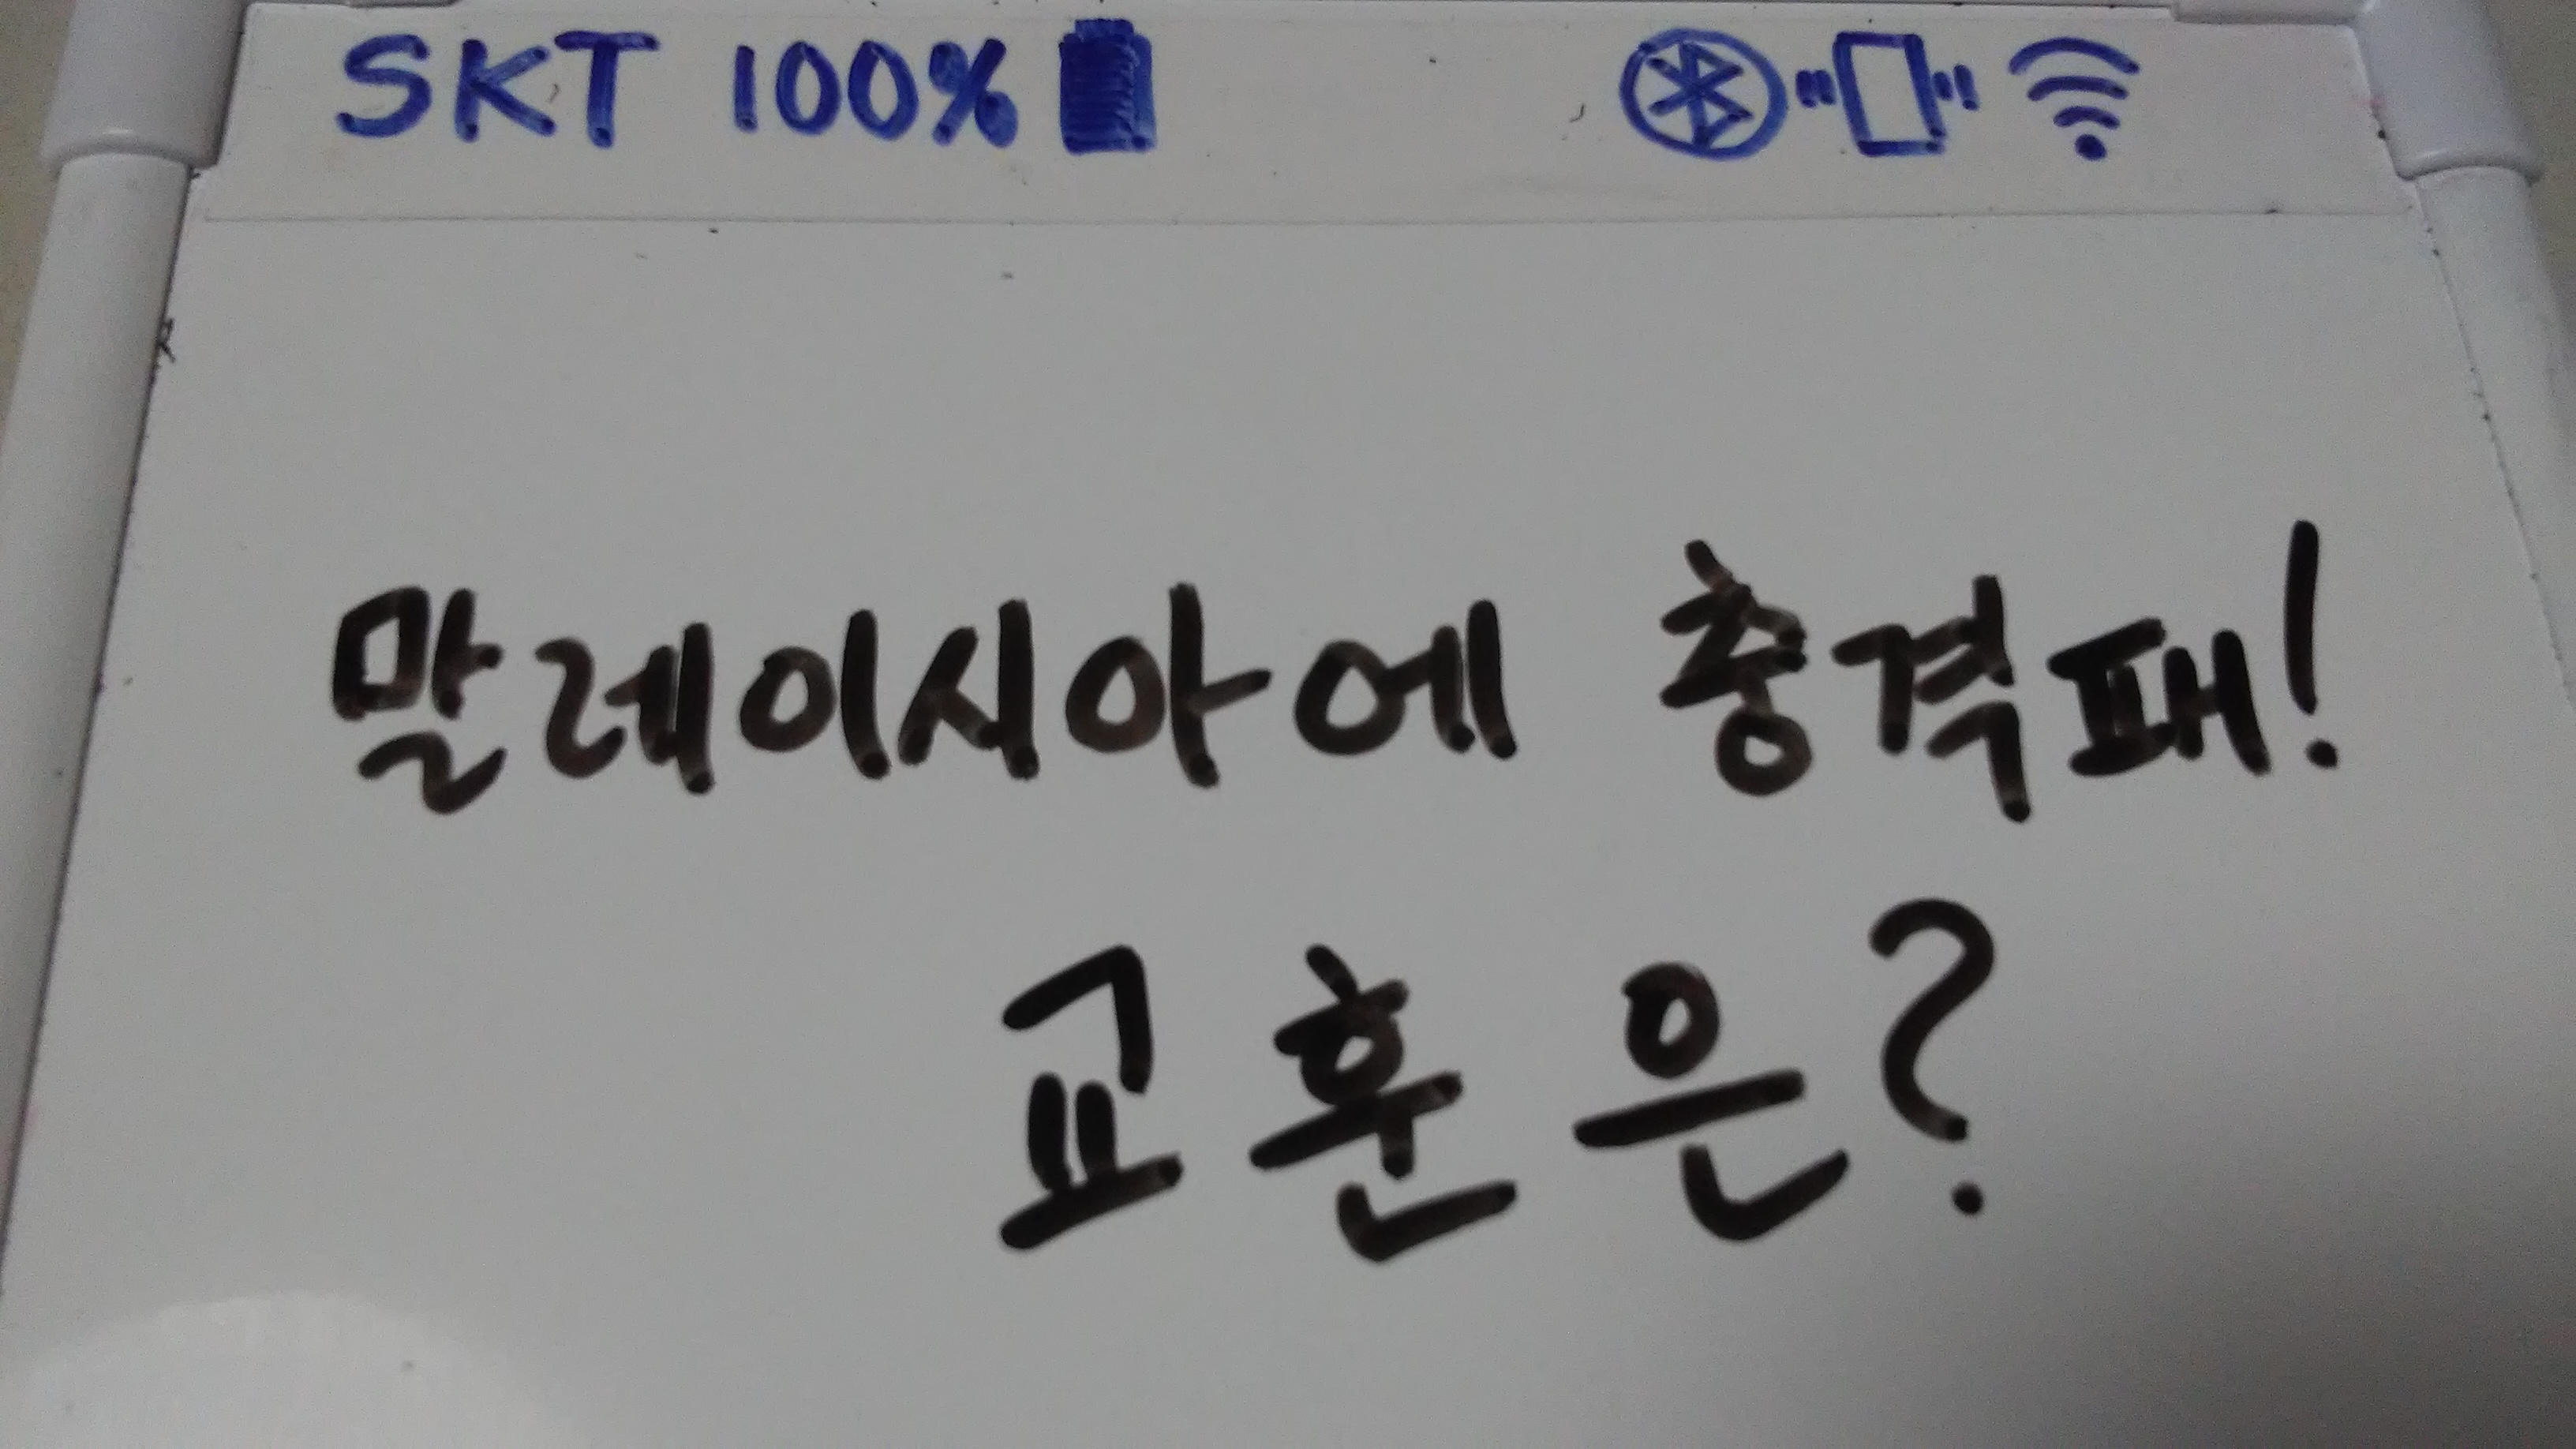 SKT 100%
말레이시아에 충격패!
교훈은?